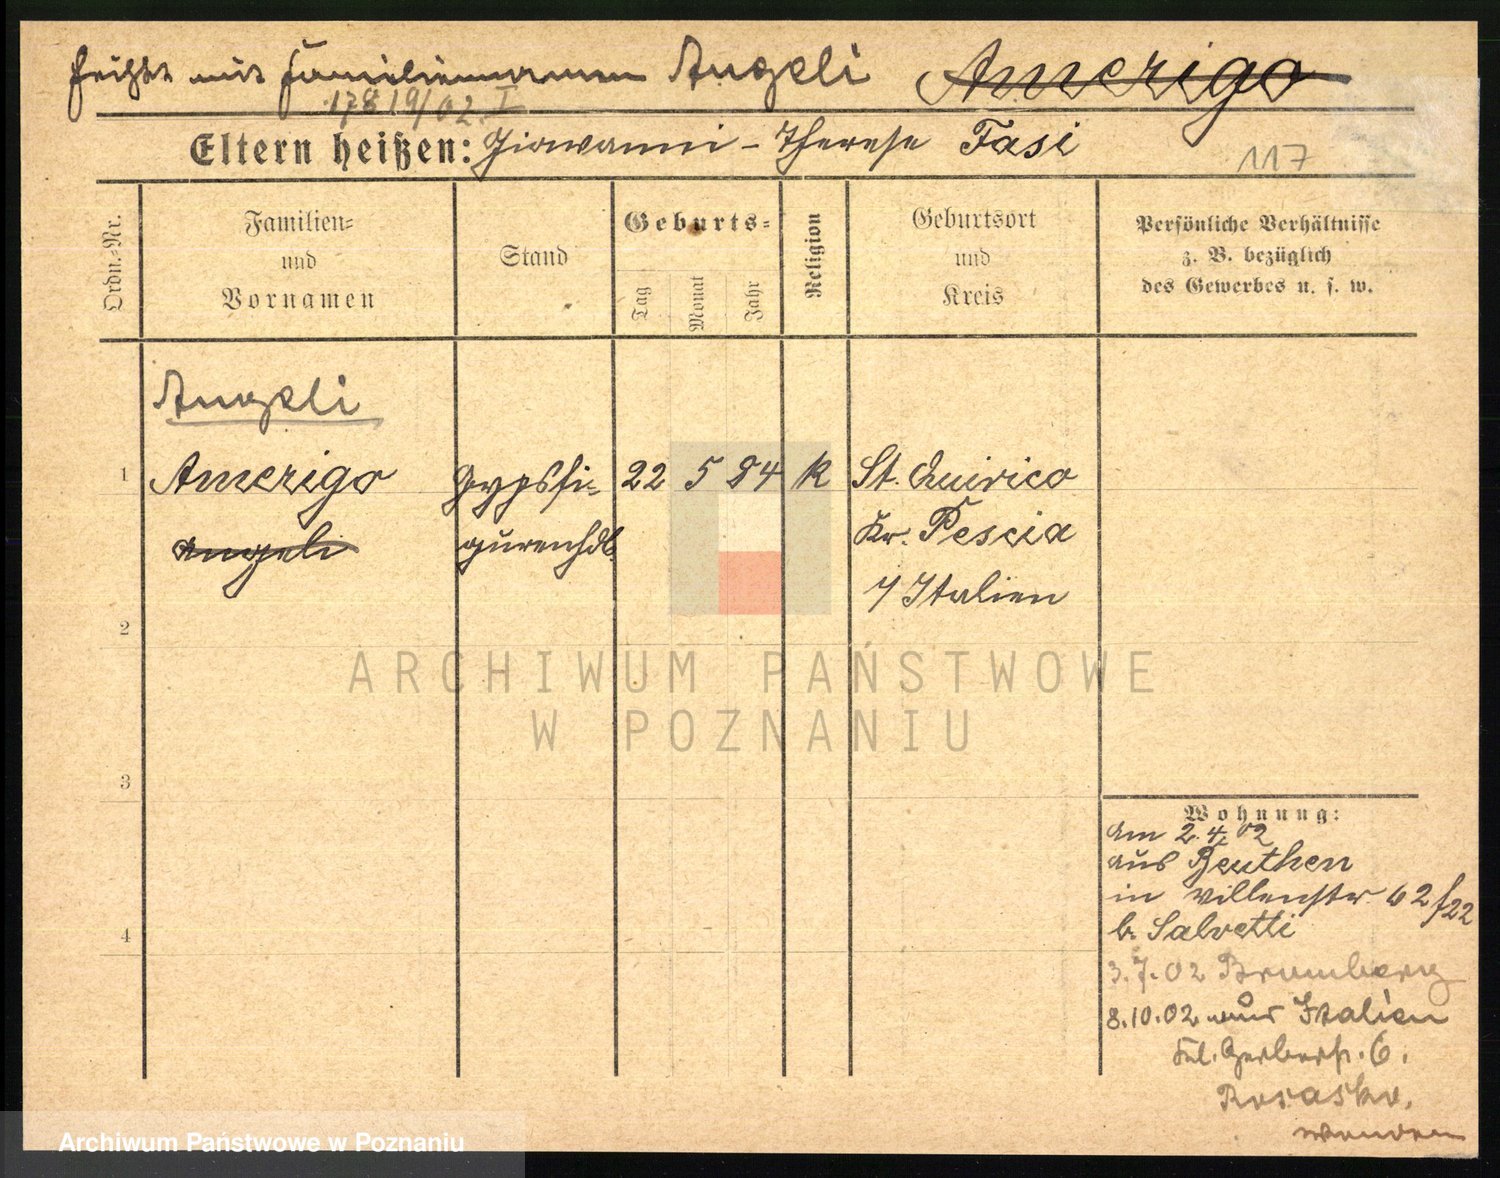 heißt mit Familiennamen Angeli Amerigo
17819/02. I
Eltern heißen: Giowanni - Therese Fasi
117
Ordn.-Nr.
Familien-
und
Vornamen
Stand
Geburts-
Tag
Monat
Jahr
Religion
Geburtsort
und
Kreis
Persönliche Verhältnisse
z. B. bezüglich
des Gewerbes u. s. w.
Angeli
1 Amerigo Gypsfi- 22 5 84 k St. Quirico
Angeli gurenhdl. Kr. Pescia
Italien
2
3
4
ARCHIWUM PAŃSTWOWE
W POZNANIU
Wohnung:
Am 2.4.02
aus Beuthen
in Villenstr 62/22
b. Salvetti
3.7.02 Bromberg
8.10.02 aus Italien
Gerberstr. 6.
wenden
Archiwum Państwowe w Poznaniu